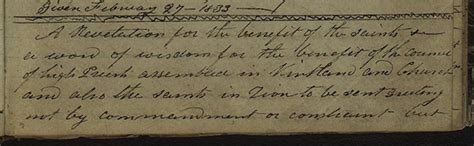 Given February 27 - 1833
A Revelation for the benefit of the saints &
a word of wisdom for the benefit of the Council
of high Priests assembled in Kirtland and Church
and also the saints in Zion to be sent greeting
not by commandment or constraint but